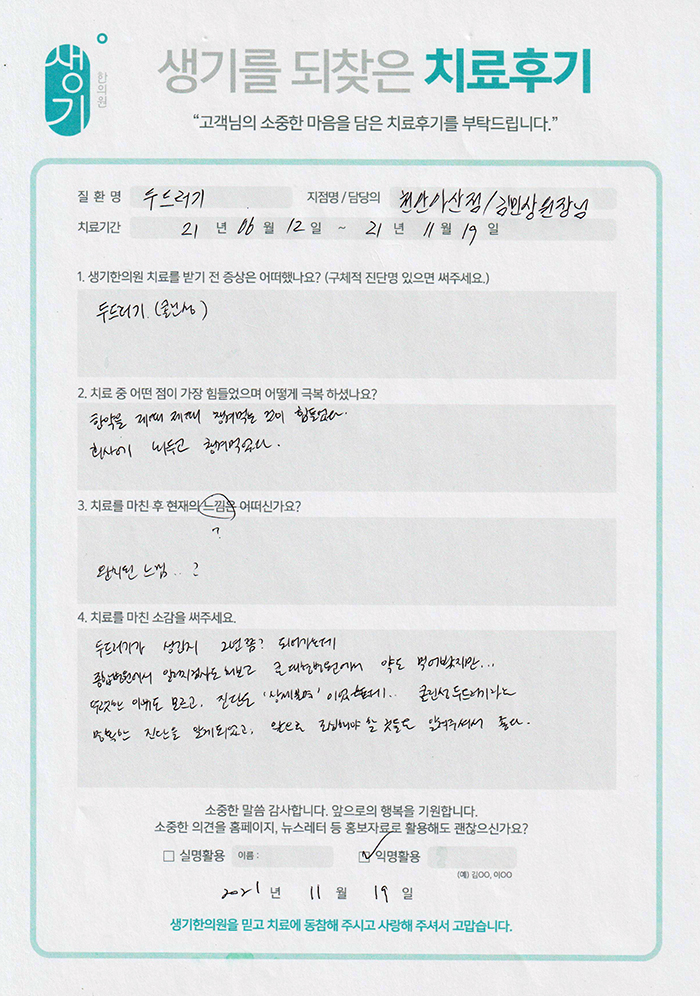 생기
한의원
생기를 되찾은 치료후기
“고객님의 소중한 마음을 담은 치료후기를 부탁드립니다.”
질 환 명 두드러기 지점명 / 담당의 천안아산점/김민상원장님
치료기간 21 년 06 월 12 일 ~ 21 년 11 월 19 일
1. 생기한의원 치료를 받기 전 증상은 어떠했나요? (구체적 진단명 있으면 써주세요.)
두드러기. (콜린성)
2. 치료 중 어떤 점이 가장 힘들었으며 어떻게 극복 하셨나요?
한약을 제때 제때 챙겨먹는 것이 힘들었다.
회사에 놔두고 챙겨먹었다.
3. 치료를 마친 후 현재의 느낌은 어떠신가요?
?
완치된 느낌..?
4. 치료를 마친 소감을 써주세요.
두드러기가 생긴지 2년쯤? 되어가는데
종합병원에서 알러지검사도 해보고 큰 대학병원에서 약도 먹어봤지만...
뚜렷한 이유도 모르고, 진단도 '상세불명' 이었는데.. 콜린성 두드러기라는
명확한 진단을 알게되었고, 앞으로 조심해야 할 것들도 알려주셔서 좋다.
소중한 말씀 감사합니다. 앞으로의 행복을 기원합니다.
소중한 의견을 홈페이지, 뉴스레터 등 홍보자료로 활용해도 괜찮으신가요?
실명활용 이름 : 익명활용
(예) 김OO, 이OO
2021 년 11 월 19 일
생기한의원을 믿고 치료에 동참해 주시고 사랑해 주셔서 고맙습니다.